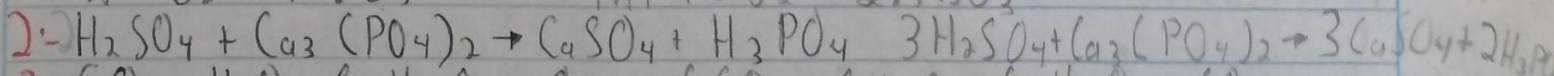 2.- H₂SO₄ + Ca₃(PO₄)₂ → CaSO₄ + H₃PO₄ 3H₂SO₄ + Ca₃(PO₄)₂ → 3CaSO₄ + 2H₃PO